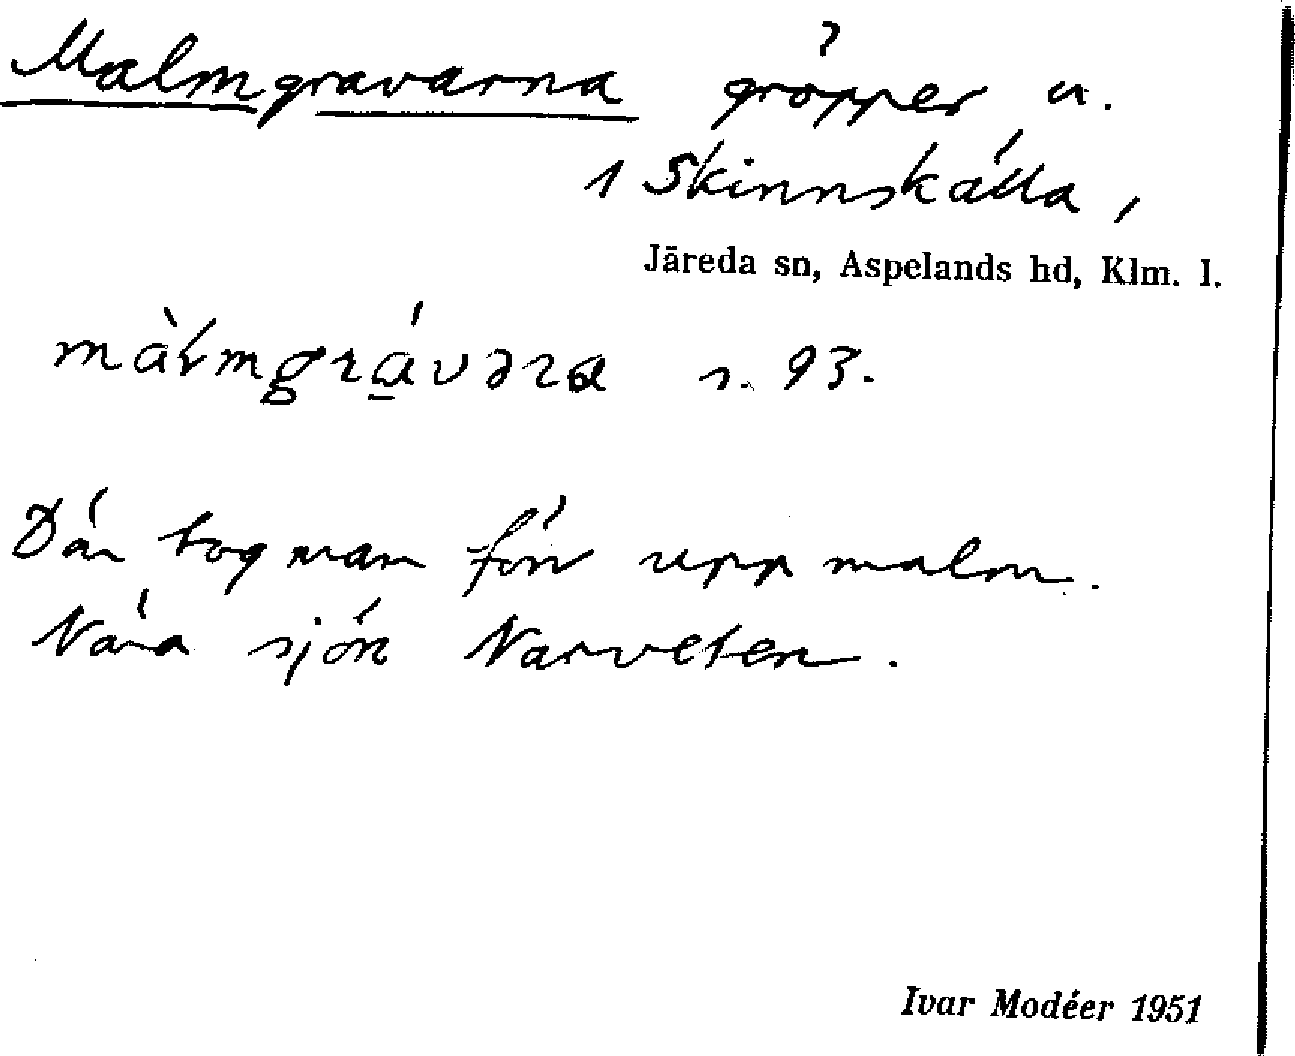 Malmgravarna gröpper u.
1 Skinnskälla,
Järeda sn, Aspelands hd, Klm. l.
s. 93.
Där tog man förr upp malm.
Nära sjön Narveten.
Ivar Modéer 1951